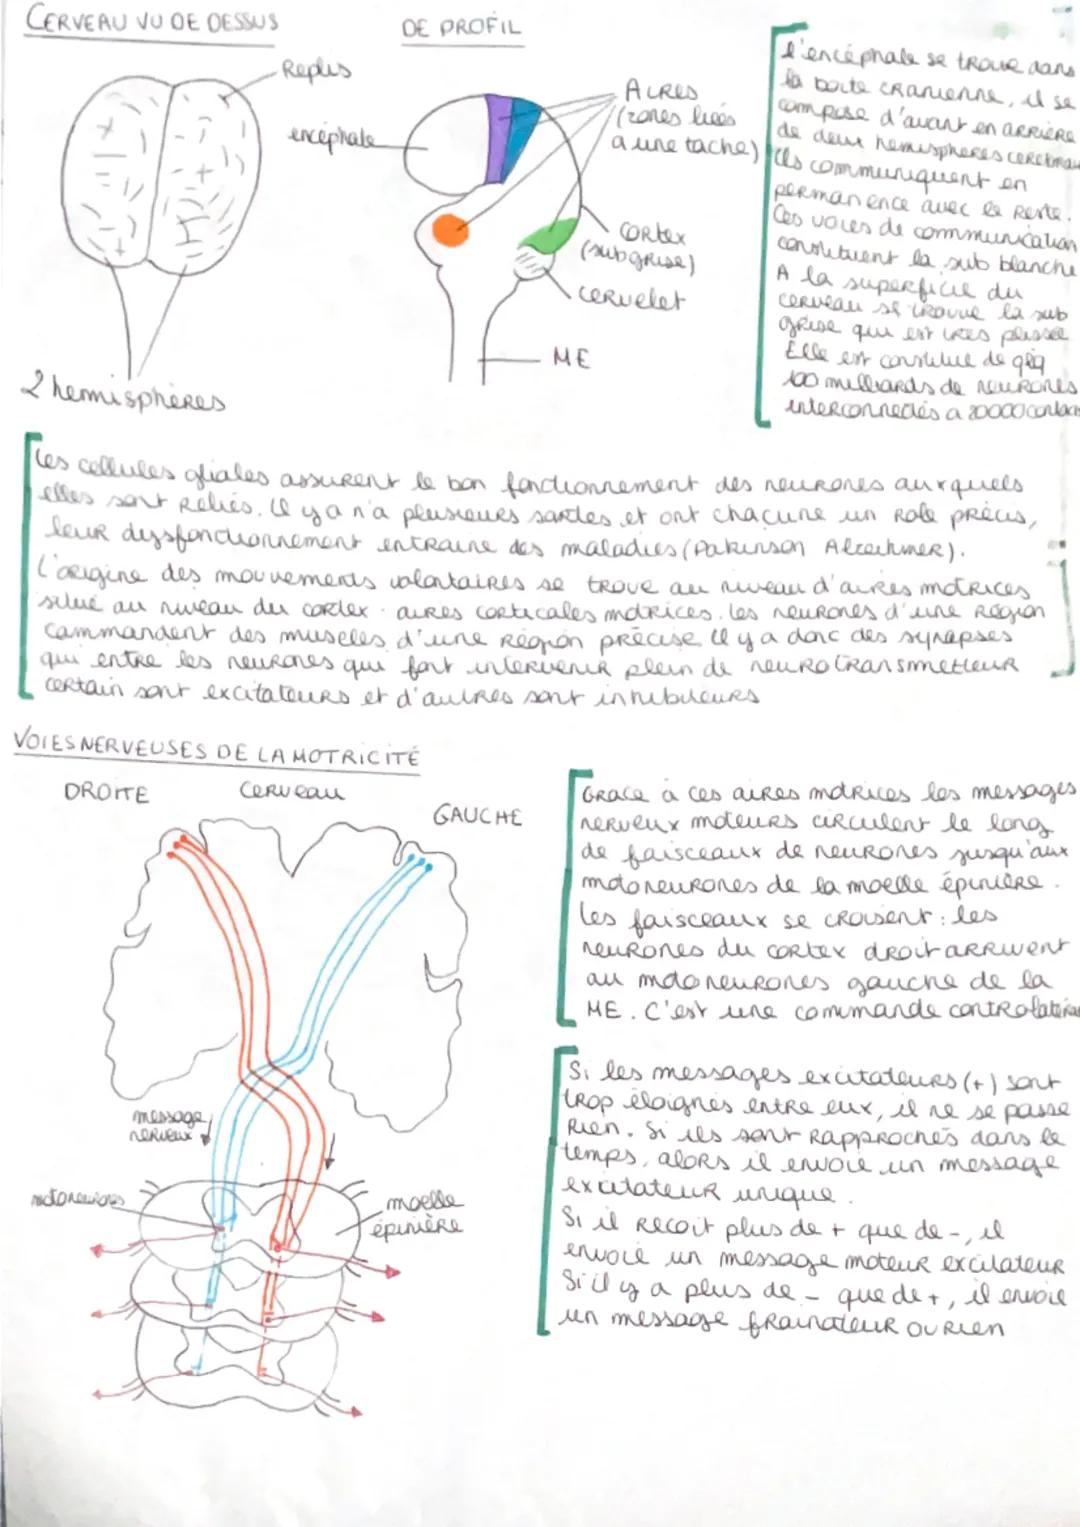 CERVEAU VU DE DESSUS
DE PROFIL
Replis
encéphale
AIRES
(zones liées
à une tache)
cortex
(sub grise)
cervelet
ME
2 hemisphères
L'encéphale se trouve dans
la boite cranienne, il se
compose d'avant en arrière
de deux hemispheres cerebraux
Ils communiquent en
permanence avec le reste.
Ces voies de communication
constituent la sub blanche
A la superficie du
cerveau se trouve la sub
grise qui est tres plissée
Elle est constitué de qlq
100 milliards de neurones
interconnectés a 20000 contacts
Les cellules gliales assurent le bon fonctionnement des neurones auxquels
elles sont reliés. Il y a n'a plusieurs sortes et ont chacune un role précis,
leur dysfonctionnement entraine des maladies (Pakinson Alzeihmer).
L'origine des mouvements volontaires se trouve au niveau d'aires motrices
situé au niveau du cortex : aires corticales motrices. les neurones d'une région
commandent des muscles d'une région précise Il y a donc des synapses
qui entre les neurones qui font intervenir plein de neurotransmetteur
certain sont excitateurs et d'autres sont inhibiteurs
VOIES NERVEUSES DE LA MOTRICITÉ
DROITE
Cerveau
GAUCHE
message
nerveux
motoneurones
moelle
épinière
Grace à ces aires motrices les messages
nerveux moteurs circulent le long
de faisceaux de neurones jusqu'aux
motoneurones de la moelle épinière.
Les faisceaux se croisent : les
neurones du cortex droit arrivent
au motoneurones gauche de la
ME. C'est une commande controlatérale
Si les messages excitateurs (+) sont
trop éloignés entre eux, il ne se passe
rien. Si ils sont rapprochés dans le
temps, alors il envoie un message
excitateur unique.
Si il recoit plus de + que de -, il
envoie un message moteur excitateur
Si il y a plus de - que de +, il envoie
un message frainateur ou rien